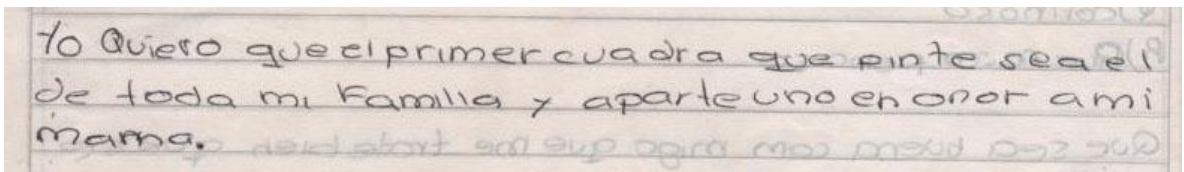 Yo Quiero que el primer cuadra que pinte sea el
de toda mi Familia y aparte uno en onor a mi
mama.